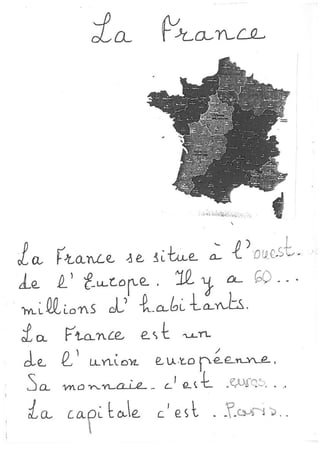 La France
La France se situe à l'ouest.
de l'Europe. Il y a 60...
millions d'habitants.
La France est un
de l'union européenne.
Sa monnaie. c'est .euros...
La capitale c'est ..Paris..